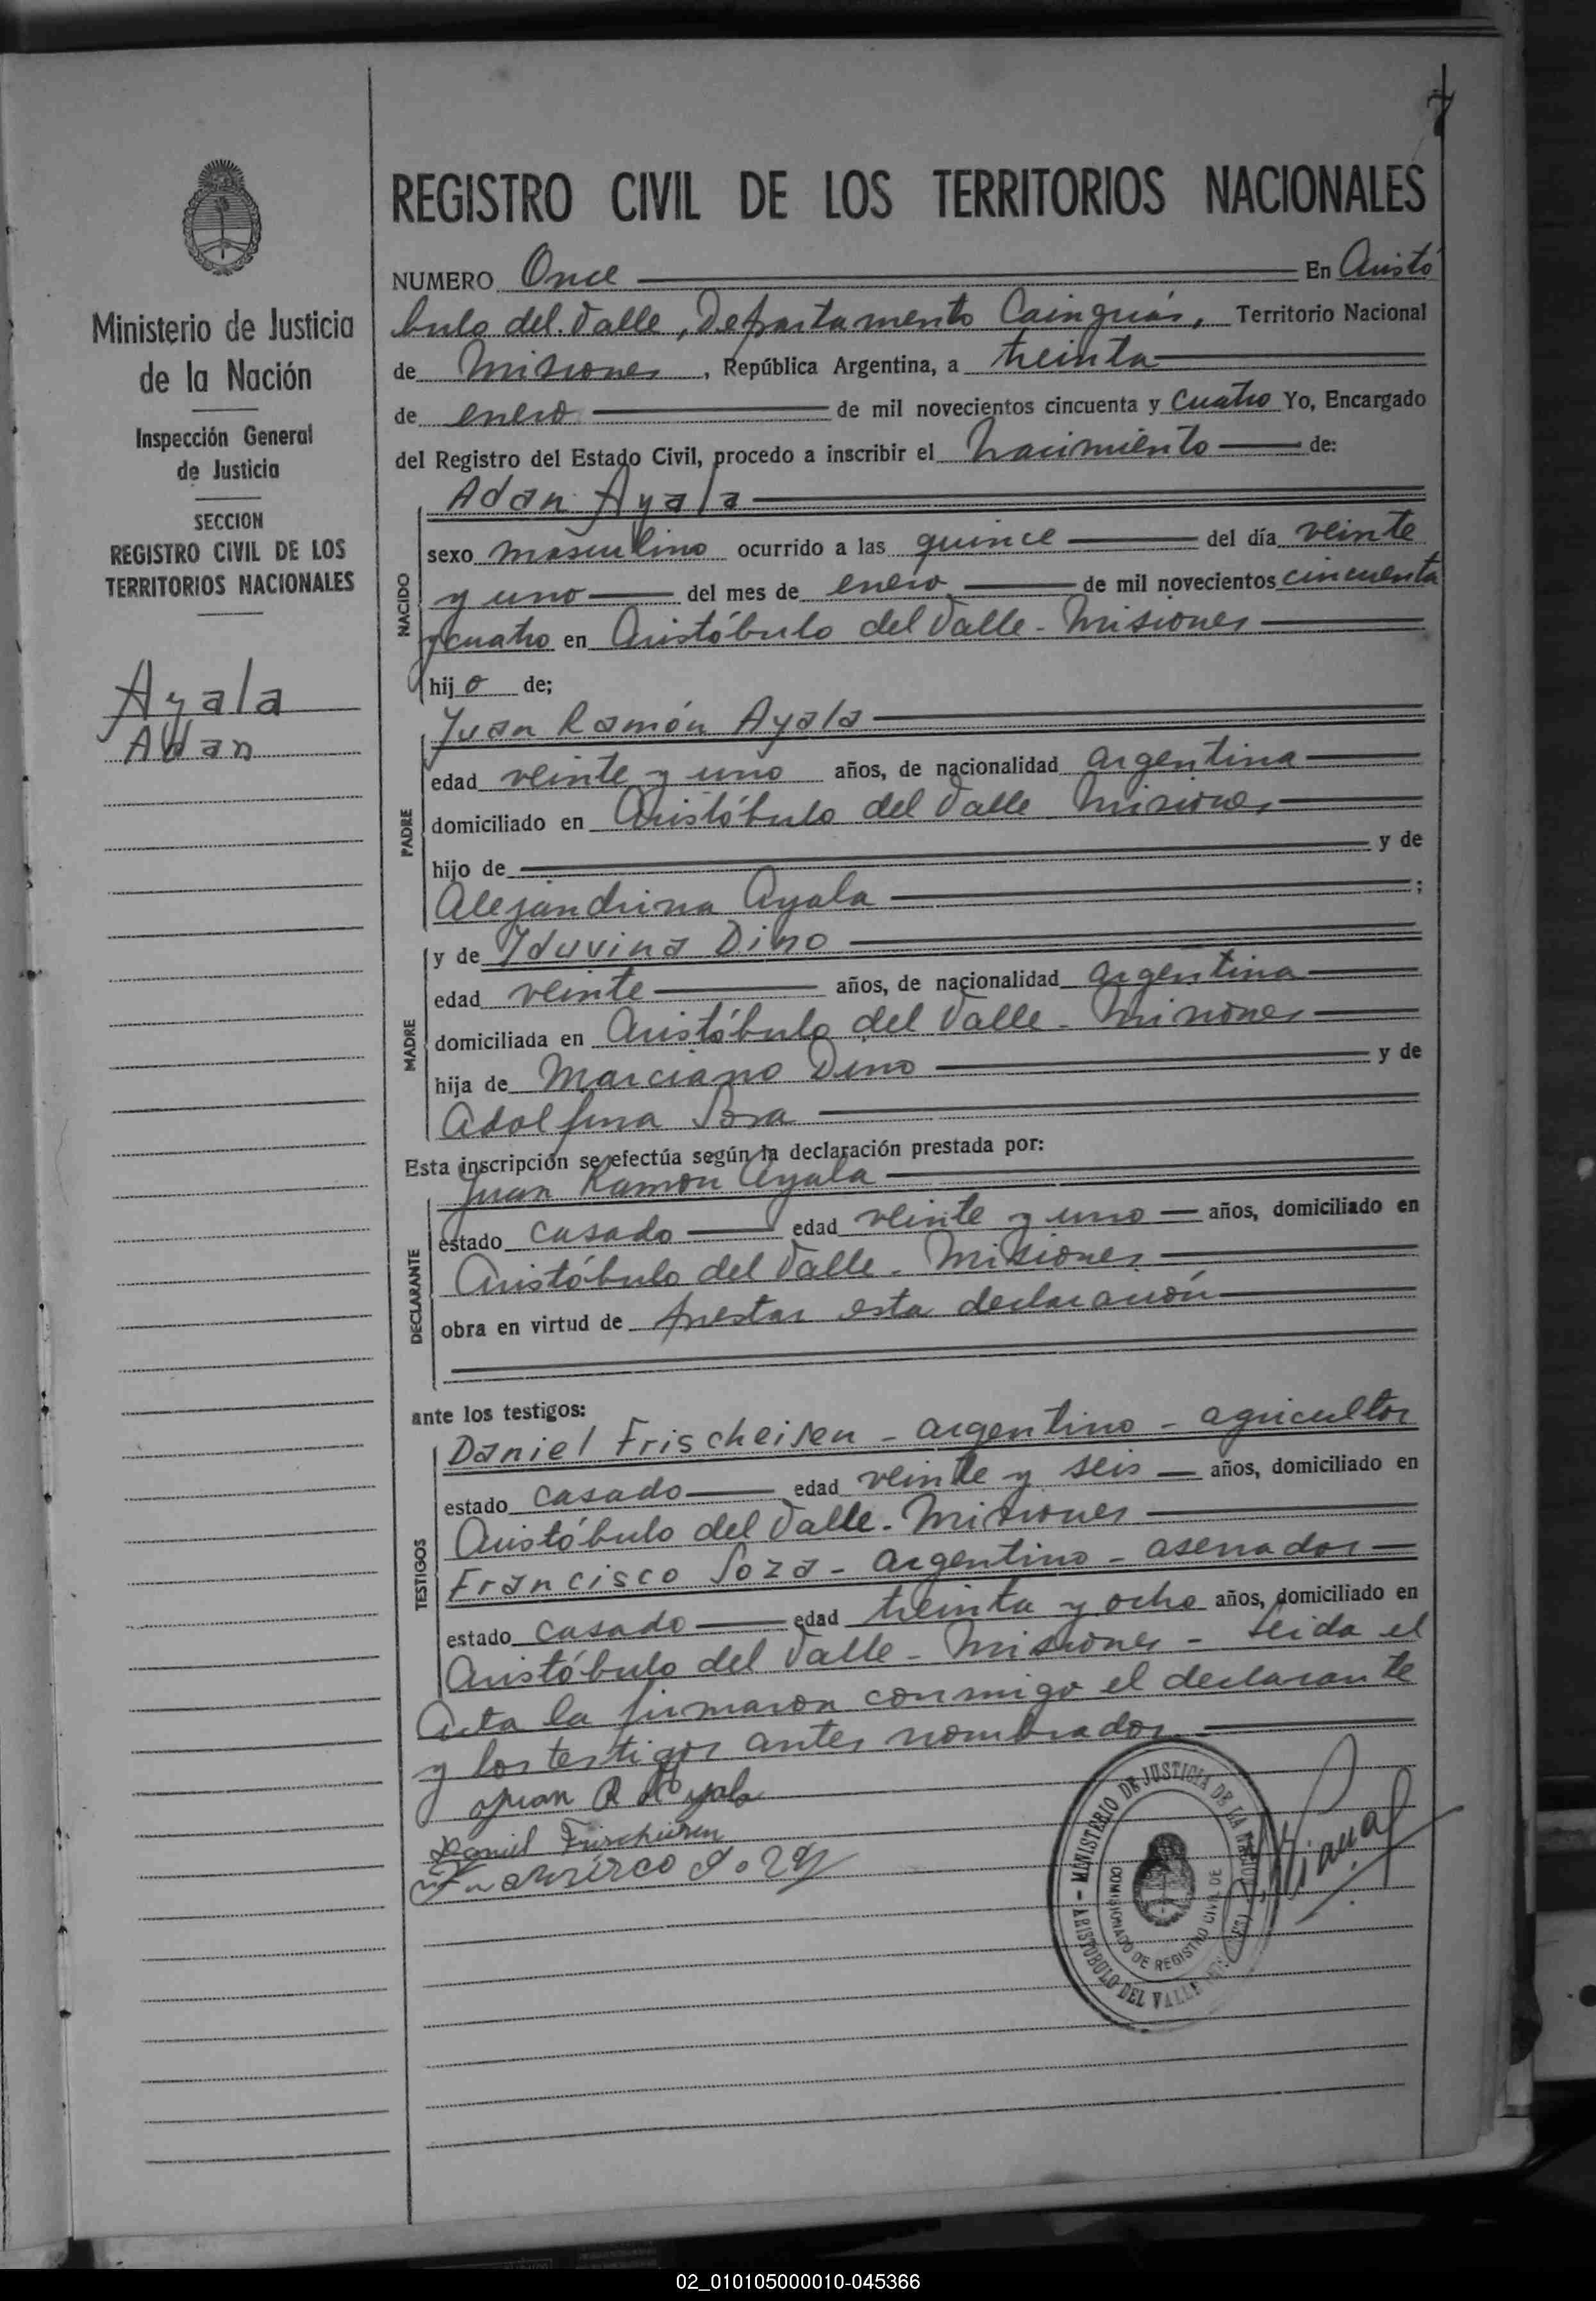 7
REGISTRO CIVIL DE LOS TERRITORIOS NACIONALES
NUMERO Once En Aristó
bulo del Valle, Departamento Cainguás, Territorio Nacional
de Misiones, República Argentina, a treinta
de enero de mil novecientos cincuenta y cuatro Yo, Encargado
del Registro del Estado Civil, procedo a inscribir el nacimiento de:
Adan Ayala
sexo masculino ocurrido a las quince del día veinte
y uno del mes de enero de mil novecientos cincuenta
y cuatro en Aristóbulo del Valle - Misiones
hijo de;
NACIDO
Juan Ramón Ayala
edad veinte y uno años, de nacionalidad argentina
domiciliado en Aristóbulo del Valle Misiones
hijo de y de
Alejandrina Ayala ;
PADRE
y de Iduvina Dino
edad veinte años, de nacionalidad argentina
domiciliada en Aristóbulo del Valle - Misiones
hija de Marciano Dino y de
Adolfina Sosa
MADRE
Esta inscripción se efectúa según la declaración prestada por:
Juan Ramón Ayala
estado casado edad veinte y uno años, domiciliado en
Aristóbulo del Valle - Misiones
obra en virtud de prestar esta declaración
DECLARANTE
ante los testigos:
Daniel Frischeisen - argentino - agricultor
estado casado edad veinte y seis años, domiciliado en
Aristóbulo del Valle - Misiones
Francisco Soza - argentino - aserrador
estado casado edad treinta y ocho años, domiciliado en
Aristóbulo del Valle - Misiones - Leida el
TESTIGOS
Acta la firmaron conmigo el declarante
y los testigos antes nombrados
Juan R Ayala
Daniel Frischeisen
MINISTERIO DE JUSTICIA DE LA NACION
COMISIONADO DE REGISTRO CIVIL DE
ARISTOBULO DEL VALLE
Ministerio de Justicia
de la Nación
Inspección General
de Justicia
SECCION
REGISTRO CIVIL DE LOS
TERRITORIOS NACIONALES
Ayala
Adan
02_010105000010-045366